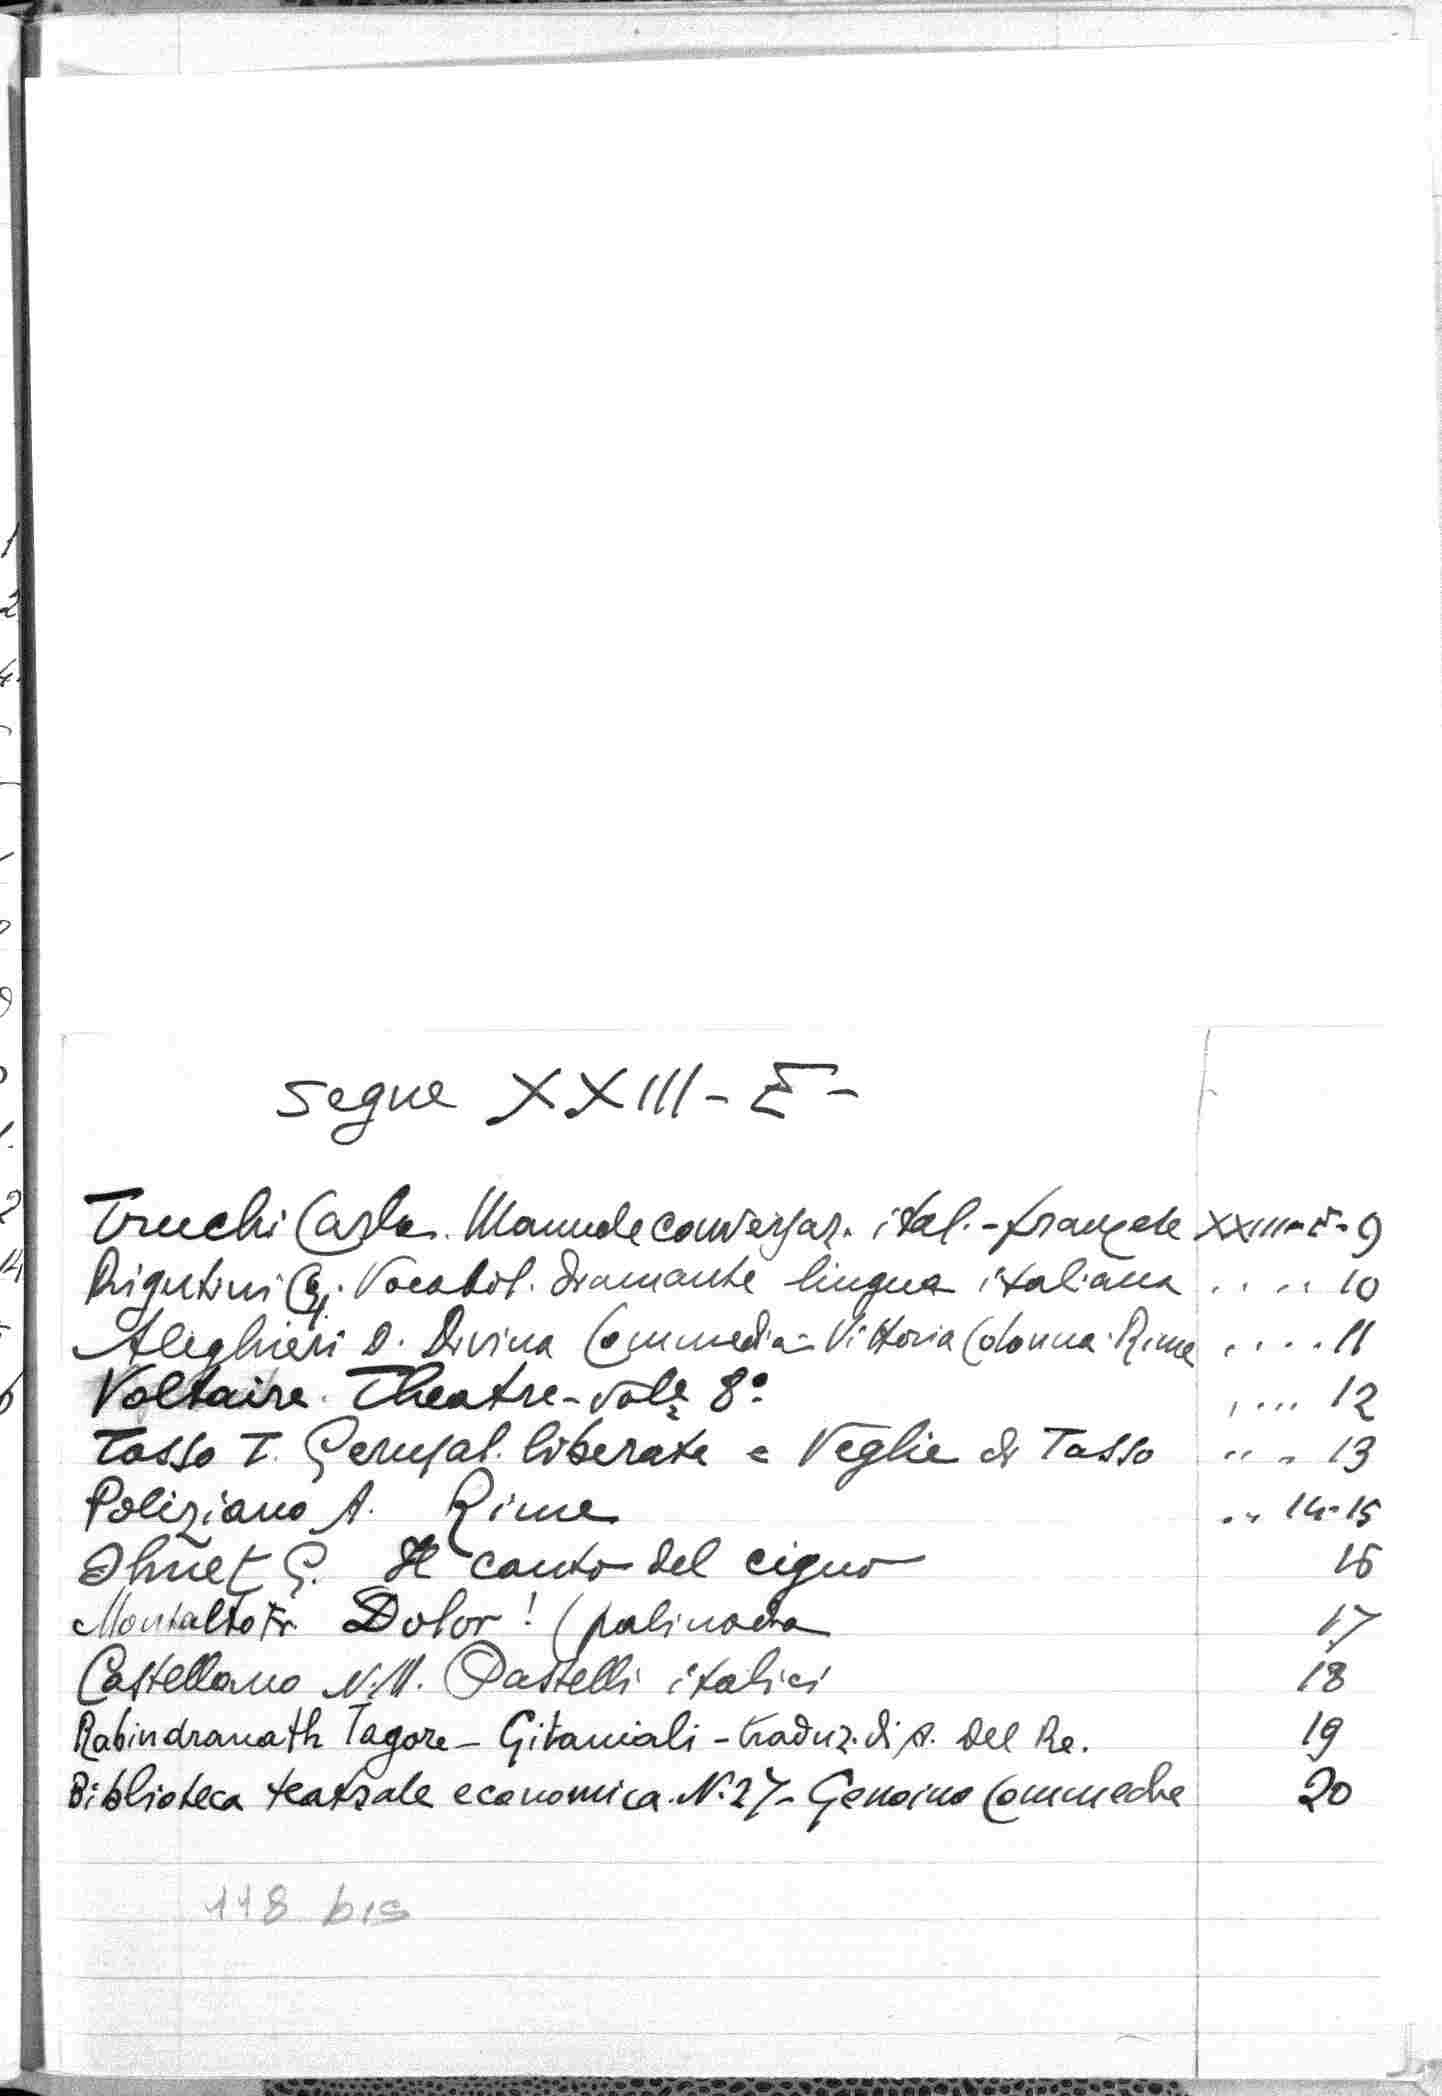 segue XXIII - E -
Truchi Carlo. Manuale conversaz. ital. - francese XXIII - E - 9
Rigutini G. Vocabol. diamante lingua italiana .. .. 10
Aleghieri D. Divina Commedia - Vittoria Colonna. Rime .. .. 11
Voltaire. Theatre - vol. 8° .. .. 12
Tasso T. Gerusal. liberata e Veglie di Tasso .. .. 13
Poliziano A. Rime .. 14-15
Ohnet G. Il canto del cigno 16
Montalto Fr. Dolor! (palinodia 17
Castellano N.M. Pastelli italici 18
Rabindranath Tagore - Gitaniali - traduz. di A. Del Re. 19
Biblioteca teatrale economica. N. 27 - Genoino Commedie 20
118 bis